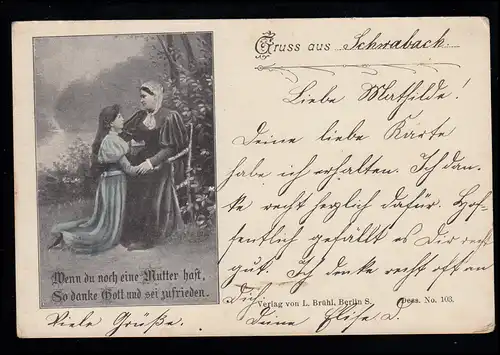 Gruss aus Schwabach.
Liebe Mathilde!
Deine liebe Karte
habe ich erhalten. Ich dan-
ke recht herzlich dafür. Hof-
fentlich gefällt es Dir recht
gut. Ich denke recht oft an
Dich
Wenn du noch eine Mutter hast,
So danke Gott und sei zufrieden.
Verlag von L. Brühl, Berlin S. Dess. No. 103.
Viele Grüße. Deine Elise. D.